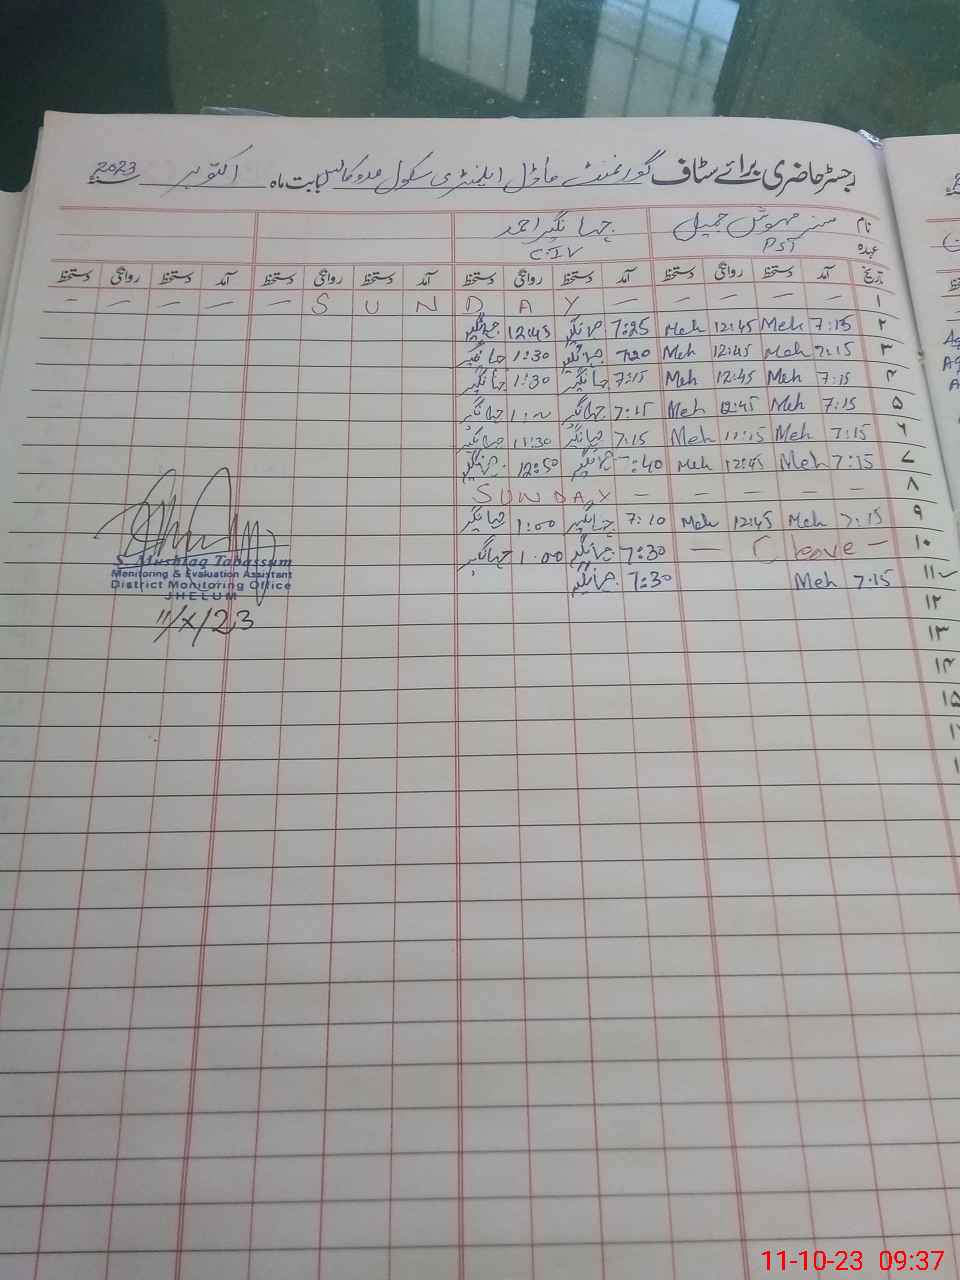 رجسٹر حاضری برائے سٹاف گورنمنٹ ماڈل ایلیمنٹری سکول بابت ماہ اکتوبر 2023
نام مسز مہوش جمیل جہانگیر احمد
عہدہ PST C-IV
تاریخ آمد دستخط روانگی دستخط آمد دستخط روانگی دستخط آمد دستخط روانگی دستخط آمد دستخط روانگی دستخط
۱ — — — — — S U N D A Y — — — — —
۲ 7:15 Meh 12:45 Meh 7:25 جہانگیر 12:45 جہانگیر
۳ 7:15 Meh 12:45 Meh 7:20 جہانگیر 1:30 جہانگیر
۴ 7:15 Meh 12:45 Meh 7:15 جہانگیر 1:30 جہانگیر
۵ 7:15 Meh 12:45 Meh 7:15 جہانگیر جہانگیر
۶ 7:15 Meh 11:15 Meh 7:15 جہانگیر 11:30 جہانگیر
۷ 7:15 Meh 12:45 Meh 7:40 جہانگیر 12:50 جہانگیر
۸ — — — — — SUNDAY
۹ 7:15 Meh 12:45 Meh 7:10 جہانگیر 1:00 جہانگیر
۱۰ — C leave — 7:30 جہانگیر 1:00 جہانگیر
۱۱ 7:15 Meh 7:30 جہانگیر
۱۲
۱۳
۱۴
۱۵
S. Mushtaq Tabassum
Monitoring & Evaluation Assistant
District Monitoring Office
JHELUM
11/X/23
11-10-23 09:37